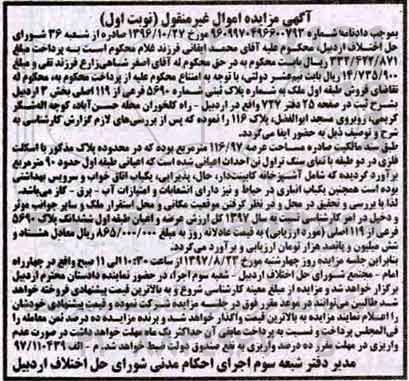 آگهی مزایده اموال غیرمنقول (نوبت اول)
بموجب دادنامه شماره ۹۶۰۹۹۷۰۴۹۶۶۰۰۷۹۳ مورخ ۱۳۹۶/۱۰/۲۷ صادره از شعبه ۳۶ شورای
حل اختلاف اردبیل محکوم علیه آقای محمد ایقانی فرزند غلام محکوم است به پرداخت مبلغ
۳۳۲/۴۷۷/۸۷۱ ریال بابت محکوم به در حق محکوم له آقای اصغر شیاهی‌زارع فرزند تقی و مبلغ
۱۴/۷۳۵/۹۰۰ ریال بابت نیم‌عشر دولتی، با توجه به امتناع محکوم علیه از پرداخت محکوم به، محکوم له
تقاضای فروش طبقه اول ملک به شماره پلاک ثبتی شماره ۵۶۹۰ فرعی از ۱۱۹ اصلی بخش ۳ اردبیل
بشرح ثبت در صفحه ۲۵ دفتر ۷۲۷ واقع در اردبیل - راه کلخوران محله حسن‌آباد، کوچه اله‌شگر
کریمی، روبروی مسجد ابوالفضل، پلاک ۱۱۶ را نموده که پس از بررسی‌های لازم گزارش کارشناسی به
شرح و توصیف ذیل به حضور ایفا می‌گردد.
طبق سند مالکیت صادره مساحت عرصه ۱۱۶/۹۷ مترمربع بوده که در محدوده پلاک مذکور با اسکلت
فلزی در دو طبقه با نمای سنگ تراول تن احداث اعیانی شده است که اعیانی طبقه اول حدود ۹۰ مترمربع
برآورد گردیده که شامل آشپزخانه کابینت‌دار، حال، پذیرایی، یکباب اتاق خواب و سرویس بهداشتی
بوده است همچنین یکباب انباری در حیاط و نیز دارای انشعابات و امتیازات آب - برق - گاز می‌باشد.
لذا با بررسی و تحقیق در محل و در نظر گرفتن موقعیت مکانی و محل استقرار ملک و سایر جوانب موثر
و دخیل در امر کارشناسی نسبت به سال ۱۳۹۷ کل ارزش عرصه و اعیان طبقه اول ششدانگ پلاک ۵۶۹۰
فرعی از ۱۱۹ اصلی (مورد ارزیابی) به قیمت عادلانه روز به مبلغ ۸۶۵/۰۰۰/۰۰۰ ریال معادل هشتاد و
شش میلیون و پانصد هزار تومان ارزیابی و برآورد می‌گردد.
بنابراین جلسه مزایده روز چهارشنبه مورخ ۱۳۹۷/۸/۲۳ از ساعت ۱۰:۳۰ الی ۱۱ صبح واقع در چهارراه
امام - مجتمع شورای حل اختلاف اردبیل - شعبه سوم اجراء در حضور نماینده دادستان محترم اردبیل
برگزار خواهد شد و مزایده از مبلغ معینه کارشناسی شروع و به بالاترین قیمت پیشنهادی فروخته خواهد
شد طالبین می‌توانند در موعد مقرر فوق در جلسه مزایده شرکت نموده و قیمت پیشنهادی خودشان
را اعلام نمایند مزایده به بالاترین قیمت واگذار خواهد شد و برنده مزایده ده درصد ثمن معامله را
فی‌المجلس پرداخت و نسبت به پرداخت مابقی آن حداکثر یک ماه مهلت خواهد داشت در صورت عدم
واریزی در مهلت مقرر ده درصد واریزی به نفع صندوق دولت ضبط خواهد شد. م - الف ۹۷/۱۱۰۴۳۹
مدیر دفتر شعبه سوم اجرای احکام مدنی شورای حل اختلاف اردبیل